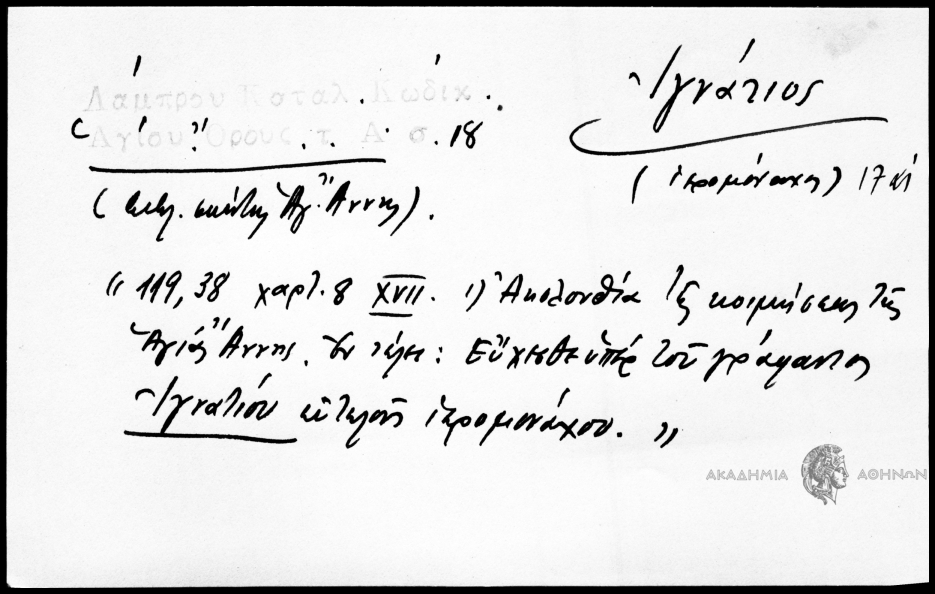 Λάμπρου Καταλ. Κώδικ.
Ἁγίου Ὄρους τ. Α σ. 18
Ἰγνάτιος
(ἱερομόναχος) 17 αἰ
(βιβλ. σκήτης Ἁγ. Ἄννης).
" 119,38 χαρτ. 8 XVII. 1) Ἀκολουθία τῆς κοιμήσεως τῆς
Ἁγίας Ἄννης. Ἐν τέλει: Εὔχεσθε ὑπὲρ τοῦ γράψαντος
Ἰγνατίου εὐτελοῦς ἱερομονάχου. "
ΑΚΑΔΗΜΙΑ ΑΘΗΝΩΝ